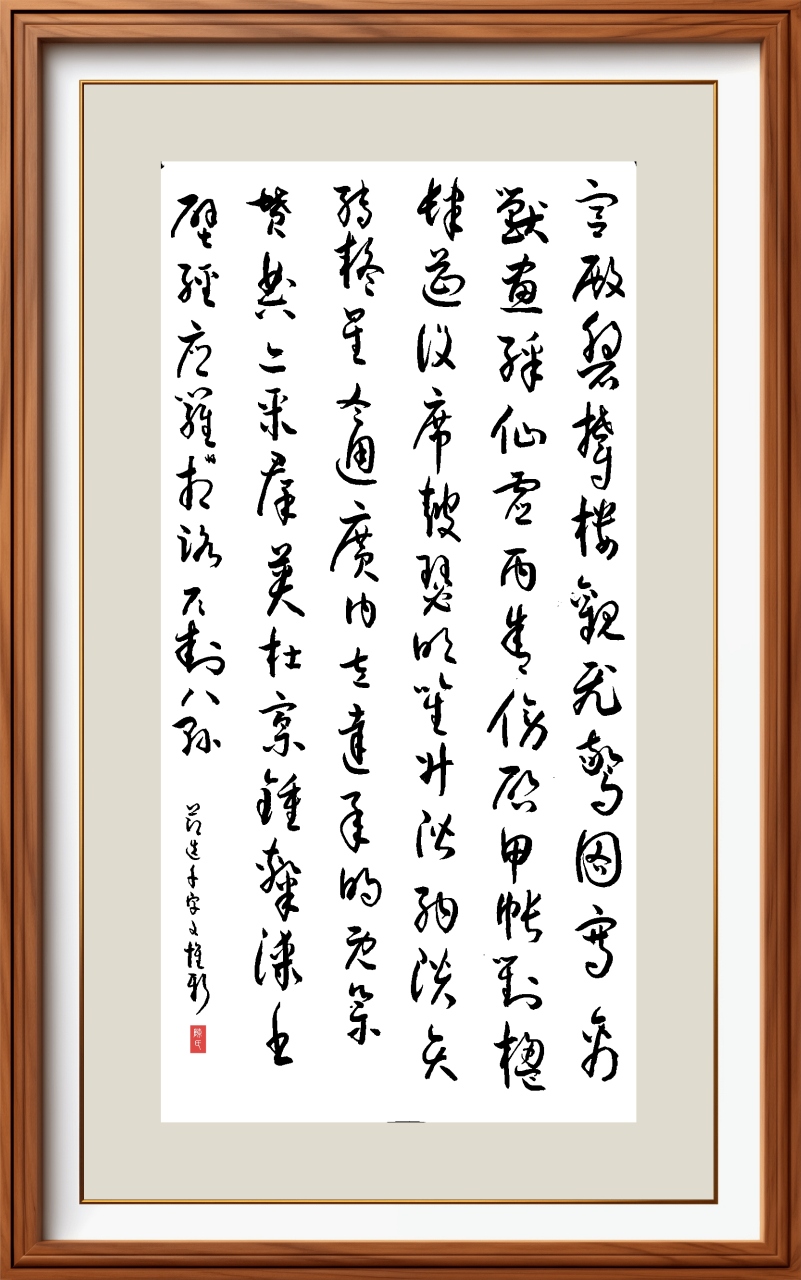 宫殿盤鬱楼觀飛驚图寫禽
獸畫綵仙靈丙舍傍啟甲帳對楹
肆筵設席鼓瑟吹笙升階納陛弁
轉疑星右通廣内左達承明既集
墳典亦聚群英杜稾鍾隸漆書
壁經府羅相路户封八縣
節选千字文